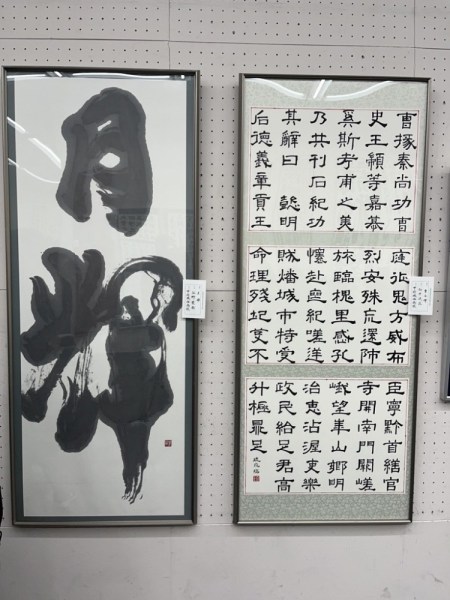 月輝
曹掾秦尚功曹
史王顓等嘉慕
奚斯考甫之美
乃共刊石紀功
其辭曰 懿明
后德義章貢王
廷征鬼方威布
烈安殊荒還師
旅臨槐里感孔
懷赴喪紀嗟逆
賊燔城市特受
命理殘圮芟不
臣寧黔首繕官
寺開南門闕嵯
峨望華山鄉明
治惠沾渥吏樂
政民給足君高
升極鼎足